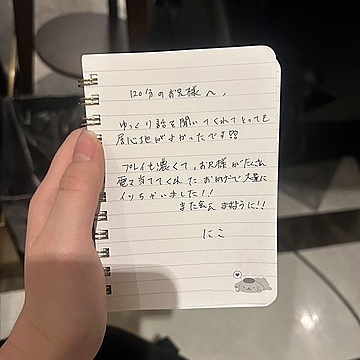 120分のお兄様へ、
ゆっくり話を聞いてくれてとっても
居心地がよかったです!!
プレイも濃くて、お兄様がたくさん
電マ当ててくれたおかげで大量に
イッちゃいました!!
また会えますように!!
にこ